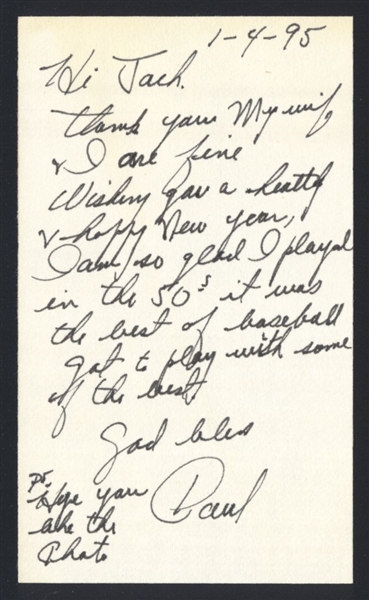 1-4-95
Hi Jack.
thank you. My wife
& I are fine
Wishing you a healthy
& happy New year,
I am so glad I played
in the 50s it was
the best of baseball
got to play with some
of the best
God bless
Paul
P.S.
Hope you
like the
Photo